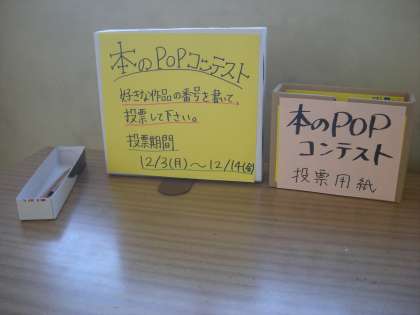 本のPOPコンテスト
好きな作品の番号を書いて、
投票して下さい。
投票期間
12/3(月)～12/14(金)
本のPOP
コンテスト
投票用紙